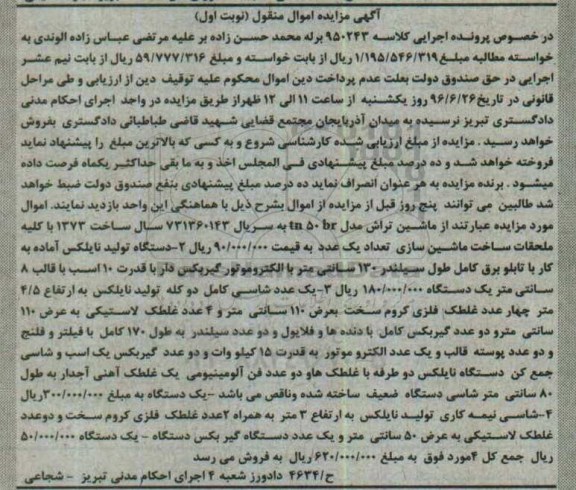 آگهی مزایده اموال منقول (نوبت اول)
در خصوص پرونده اجرایی کلاسه ۹۵۰۲۴۳ برله محمد حسن زاده بر علیه مرتضی عباس زاده الوندی به
خواسته مطالبه مبلغ ۱/۱۹۵/۵۴۶/۳۱۹ ریال از بابت خواسته و مبلغ ۵۹/۷۷۷/۳۱۶ ریال از بابت نیم عشر
اجرایی در حق صندوق دولت بعلت عدم پرداخت دین اموال محکوم علیه توقیف دین از ارزیابی و طی مراحل
قانونی در تاریخ ۹۶/۶/۲۶ روز یکشنبه از ساعت ۱۱ الی ۱۲ ظهر از طریق مزایده در واحد اجرای احکام مدنی
دادگستری تبریز نرسیده به میدان آذربایجان مجتمع قضایی شهید قاضی طباطبائی دادگستری بفروش
خواهد رسید . مزایده از مبلغ ارزیابی شده کارشناسی شروع و به کسی که بالاترین مبلغ را پیشنهاد نماید
فروخته خواهد شد و ده درصد مبلغ پیشنهادی فی المجلس اخذ و به ما بقی حداکثر یکماه فرصت داده
میشود . برنده مزایده به هر عنوان انصراف نماید ده درصد مبلغ پیشنهادی بنفع صندوق دولت ضبط خواهد
شد طالبین می توانند پنج روز قبل از مزایده از اموال بشرح ذیل با هماهنگی این واحد بازدید نمایند. اموال
مورد مزایده عبارتند از ماشین تراش مدل tn ۵۰ br به سریال ۷۳۱۳۶۰۱۴۳ سال ساخت ۱۳۷۳ با کلیه
ملحقات ساخت ماشین سازی تعداد یک عدد به قیمت ۹۰/۰۰۰/۰۰۰ ریال ۲-دستگاه تولید نایلکس آماده به
کار با تابلو برق کامل طول سیلندر ۱۳۰ سانتی متر با الکتروموتور گیربکس دار با قدرت ۱۰ اسب با قالب ۸
سانتی متر یک دستگاه ۱۸۰/۰۰۰/۰۰۰ ریال ۳-یک عدد شاسی کامل دو کله تولید نایلکس به ارتفاع ۴/۵
متر چهار عدد غلطک فلزی کروم سخت بعرض ۱۱۰ سانتی متر و ۴ عدد غلطک لاستیکی به عرض ۱۱۰
سانتی مترو دو عدد گیربکس کامل با دنده ها و فلایول و دو عدد سیلندر به طول ۱۷۰ کامل با فیلتر و فلنج
و دو عدد پوسته قالب و یک عدد الکترو موتور به قدرت ۱۵ کیلو وات و دو عدد گیربکس یک اسب و شاسی
جمع کن دستگاه نایلکس دو طرفه با غلطک هاو دو عدد فن آلومینیومی یک غلطک آهنی آجدار به طول
۸۰ سانتی متر شاسی دستگاه ضعیف ساخته شده وناقص می باشد -یک دستگاه به مبلغ ۳۰۰/۰۰۰/۰۰۰ریال
۴-شاسی نیمه کاری تولید نایلکس به ارتفاع ۳ متر به همراه ۲عدد غلطک فلزی کروم سخت و دوعدد
غلطک لاستیکی به عرض ۵۰ سانتی متر و یک عدد دستگاه گیر بکس دستگاه - یک دستگاه ۵۰/۰۰۰/۰۰۰
ریال جمع کل ۴مورد فوق به مبلغ ۶۲۰/۰۰۰/۰۰۰ ریال به فروش می رسد
ح/۴۶۳۴ دادورز شعبه ۴ اجرای احکام مدنی تبریز - شجاعی